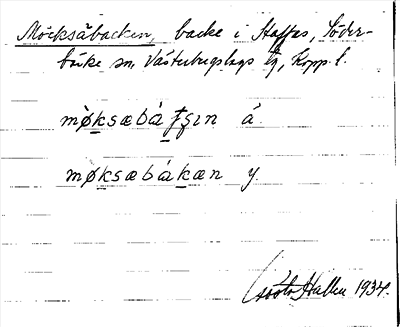 Möcksäbacken, backe i Haffas, Söder-
bärke sn, Västerbergslags tg, Kopp. l.
mø̀ksæbáʄʂın á.
mø̀ksæbákæn y.
Hallen 1934.